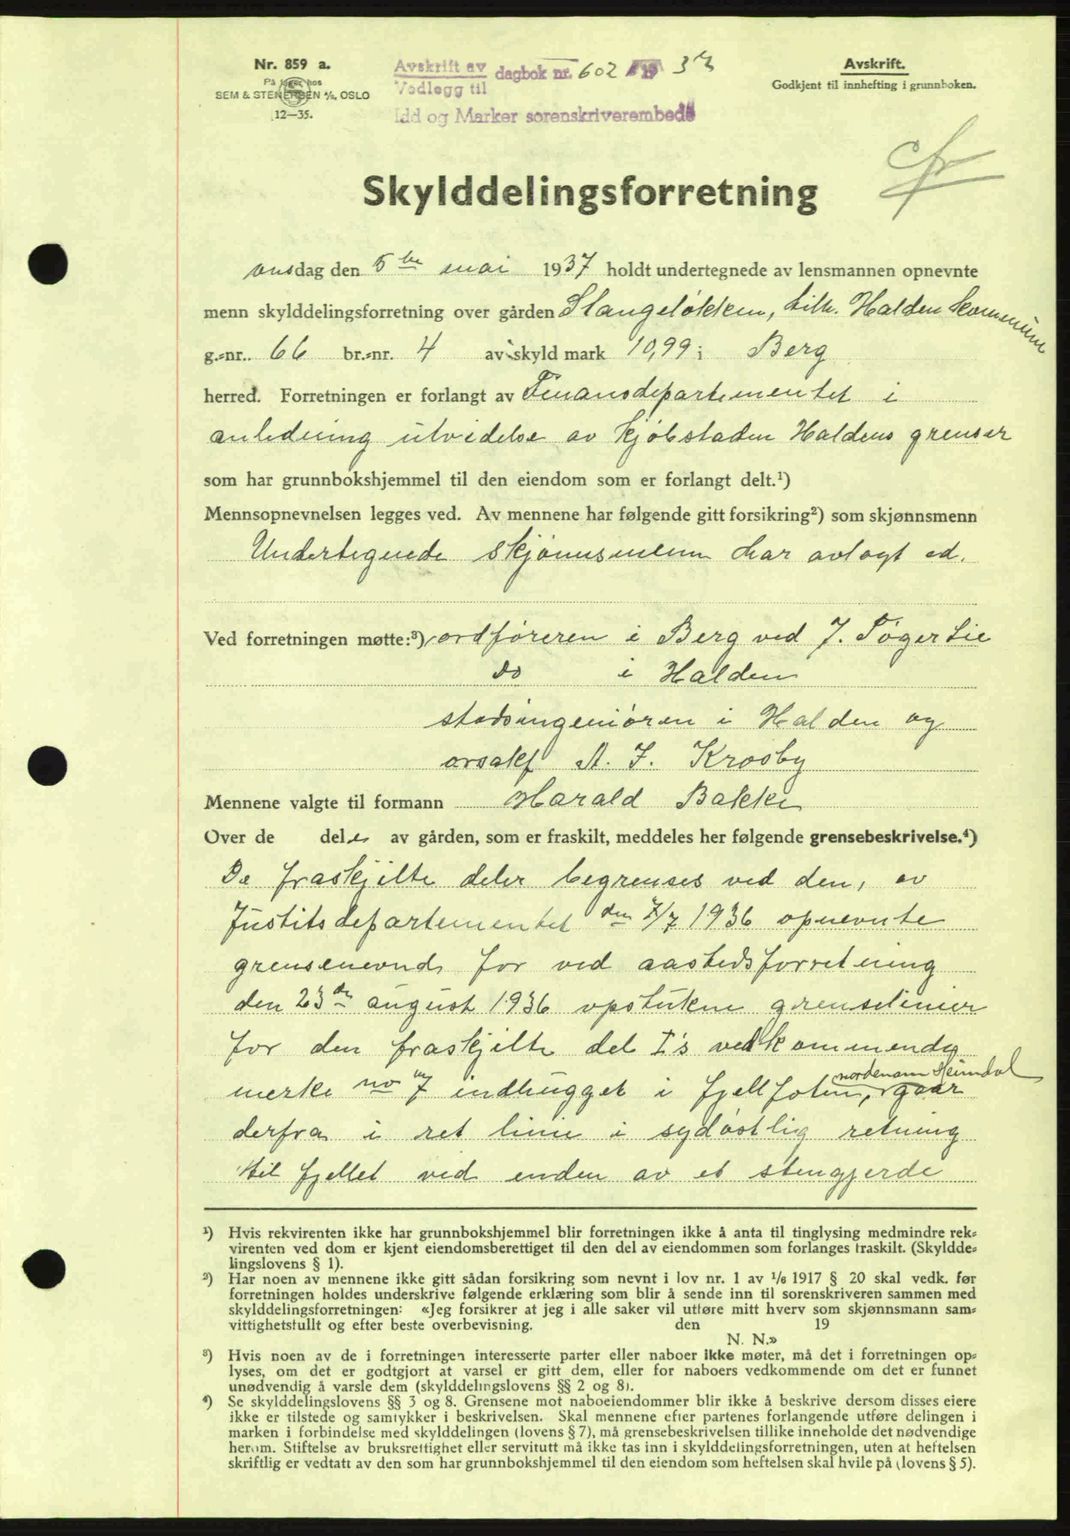 Nr. 859 a.
På lager hos
SEM & STENERSEN A/S, OSLO
12—35.
Avskrift av
Vedlegg til
dagbok nr. 602 19 37
Idd og Marker sorenskriverembede
Avskrift.
Godkjent til innhefting i grunnboken.
cfr
Skylddelingsforretning
onsdag den 5te mai 1937 holdt undertegnede av lensmannen opnevnte
menn skylddelingsforretning over gården Stangeløkken, tilh. Halden kommune
g.-nr. 66 br.-nr. 4 av skyld mark 10,99 i Berg
herred. Forretningen er forlangt av Finansdepartementet i
anledning utvidelse av kjøbstaden Haldens grenser
som har grunnbokshjemmel til den eiendom som er forlangt delt.¹)
Mennsopnevnelsen legges ved. Av mennene har følgende gitt forsikring²) som skjønnsmenn
Undertegnede skjønnsmenn har avlagt ed.
Ved forretningen møtte:³) ordføreren i Berg ved J. Tøger Lie
do i Halden
stadsingeniøren i Halden og
orsakf A. F. Krosby
Mennene valgte til formann Harald Bakke
Over de dele av gården, som er fraskilt, meddeles her følgende grensebeskrivelse.⁴)
De fraskjilte deler begrenses ved den, av
Justitsdepartementet den 7/7 1936 opnevnte
grensenevnd for ved aastedsforretning
den 23de august 1936 opstukne grenselinier
for den fraskjilte del I's vedkommende
merke no 7 indhugget i fjellfoten, nordenom Heimdal gaar
derfra i ret linie i sydøstlig retning
til fjellet ved enden av et stengjerde
¹) Hvis rekvirenten ikke har grunnbokshjemmel blir forretningen ikke å anta til tinglysing medmindre rek-
virenten ved dom er kjent eiendomsberettiget til den del av eiendommen som forlanges fraskilt. (Skyldde-
lingslovens § 1).
²) Har noen av mennene ikke gitt sådan forsikring som nevnt i lov nr. 1 av 1/6 1917 § 20 skal vedk. før
forretningen holdes underskrive følgende erklæring som blir å sende inn til sorenskriveren sammen med
skylddelingsforretningen: «Jeg forsikrer at jeg i alle saker vil utføre mitt hverv som skjønnsmann sam-
vittighetsfullt og efter beste overbevisning. den 19
N. N.»
³) Hvis noen av de i forretningen interesserte parter eller naboer ikke møter, må det i forretningen op-
lyses, om det er godtgjort at varsel er gitt dem, eller for naboers vedkommende om det er funnet
unødvendig å varsle dem (skylddelingslovens §§ 2 og 8).
⁴) Se skylddelingslovens §§ 3 og 8. Grensene mot naboeiendommer blir ikke å beskrive dersom disses eiere
ikke er tilstede og samtykker i beskrivelsen. Skal mennene efter partenes forlangende utføre delingen i
marken i forbindelse med skylddelingen (lovens § 7), må grensebeskrivelsen tillike inneholde det nødvendige
herom. Stiftelse av bruksrettighet eller servitutt må ikke tas inn i skylddelingsforretningen, uten at heftelsen
skriftlig er vedtatt av den som har grunnbokshjemmel til den eiendom som heftelsen skal hvile på (lovens § 5).